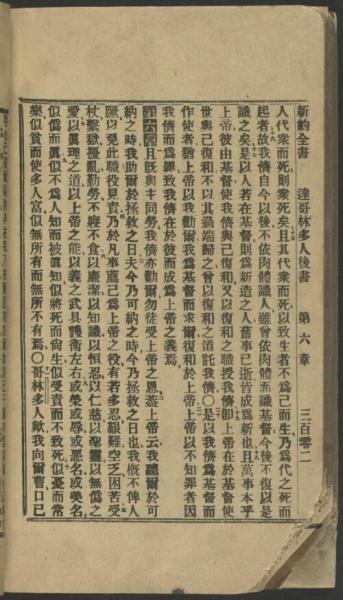 新約全書　達哥林多人後書　第六章　三百零二
人代衆而死則衆死矣且其代衆而死以致生者不爲己而生乃爲代之死而
起者故我儕自今以後不依肉體識人雖曾依肉體而識基督今後不復以是
識之矣是以人若在基督則爲新造之人舊事已逝皆成爲新也且萬事本乎
上帝彼由基督使我儕與己復和又以復和之職授我儕卽上帝在於基督使
世與己復和不以其過端歸之曾以復和之道託我儕〇是以我儕爲基督而
作使者猶上帝以我勸爾我爲基督而求爾復和於上帝上帝以不知罪者因
我儕而爲罪致我儕在於彼而成爲上帝之義焉
第六章且旣與主同勞我儕亦勸爾勿徒受上帝之恩蓋上帝云我聽爾於可
納之時我助爾於拯救之日夫今乃可納之時今乃拯救之日也我槪不俾人
蹶以免此職役見責乃於凡事薦己爲上帝之役有若多忍艱難空乏困苦受
杖繫獄擾亂勤勞不寢不食以廉潔以知識以恒忍以仁慈以聖靈以無僞之
愛以眞理之道以上帝之能以義之武具護衞左右或榮或辱或惡名或美名
似僞而眞似不爲人知而被眞知似將死而尙生似受責而不致死似憂而常
樂似貧而使多人富似無所有而無所不有焉〇哥林多人歟我向爾曹口已